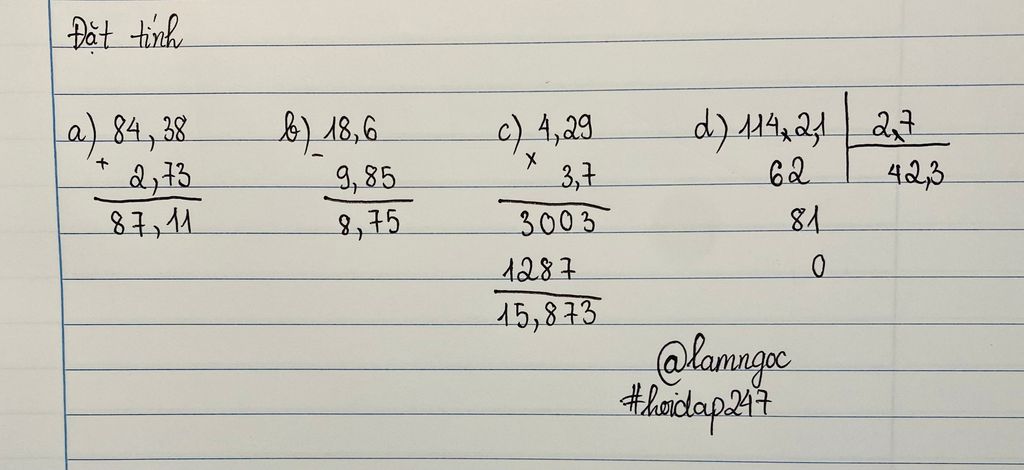 Đặt tính
a) 84,38 b) 18,6 c) 4,29 d) 114,2,1 | 2,7
+ 2,73 - 9,85 x 3,7 62 42,3
87,11 8,75 3003 81
1287 0
15,873
@lamngoc
#hoidap247